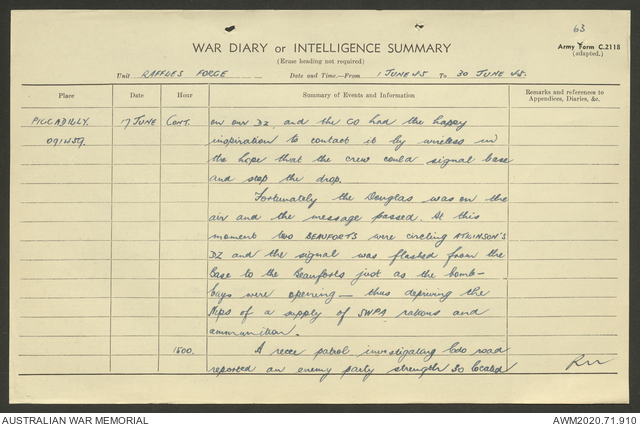 63
WAR DIARY or INTELLIGENCE SUMMARY
Army Form C.2118
(adapted.)
(Erase heading not required)
Unit RAFFLES FORCE Date and Time—From 1 JUNE 45 To 30 JUNE 45.
Place Date Hour Summary of Events and Information Remarks and references to Appendices, Diaries, &c.
PICCADILLY. 17 JUNE CONT. on our DZ, and the CO had the happy
091459. inspiration to contact it by wireless in
the hope that the crew could signal base
and stop the drop.
Fortunately the Douglas was on the
air and the message passed. At this
moment two BEAUFORTS were circling ATKINSON'S
DZ and the signal was flashed from the
base to the Beauforts just as the bomb-
bays were opening — thus depriving the
Nips of a supply of SWPA rations and
ammunition.
1500. A recce patrol investigating road
reported an enemy party strength 30 located
AUSTRALIAN WAR MEMORIAL
AWM2020.71.910